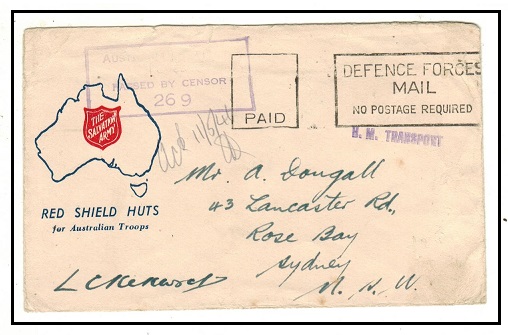 PASSED BY CENSOR
269
PAID
DEFENCE FORCES
MAIL
NO POSTAGE REQUIRED
H. M. TRANSPORT
THE
SALVATION
ARMY
RED SHIELD HUTS
for Australian Troops
Mr. A. Dougall
43 Lancaster Rd.,
Rose Bay
Sydney
N. S. W.